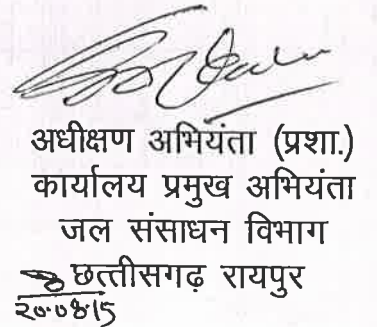 अधीक्षण अभियंता (प्रशा.)
कार्यालय प्रमुख अभियंता
जल संसाधन विभाग
छत्तीसगढ़ रायपुर